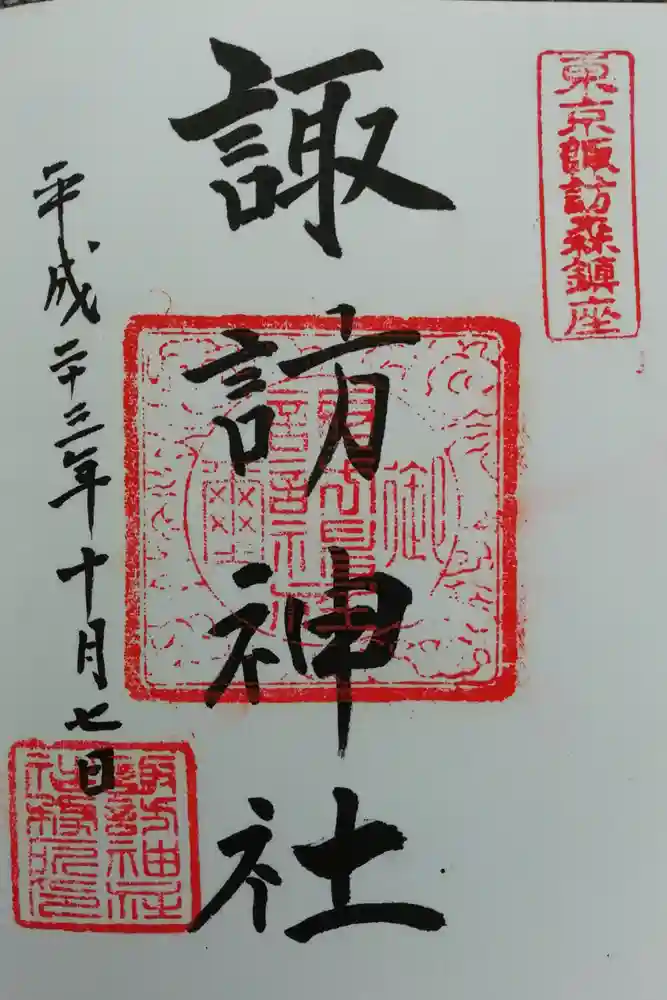 東京諏訪森鎮座
諏訪神社
平成二十三年十月七日
諏訪神社